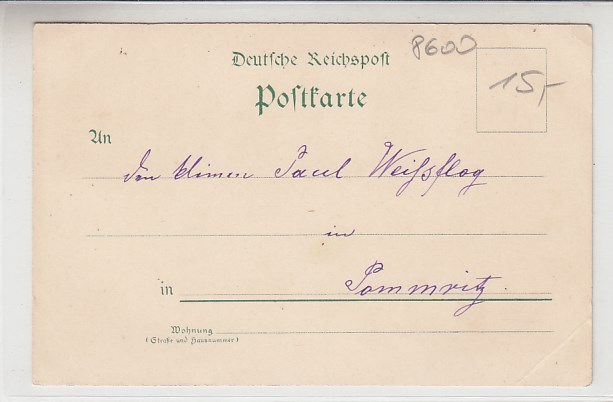 8600
Deutsche Reichspost
15,-
Postkarte
An
den kleinen Paul Weißflog
in
in Pommritz.
Wohnung
(Straße und Hausnummer)